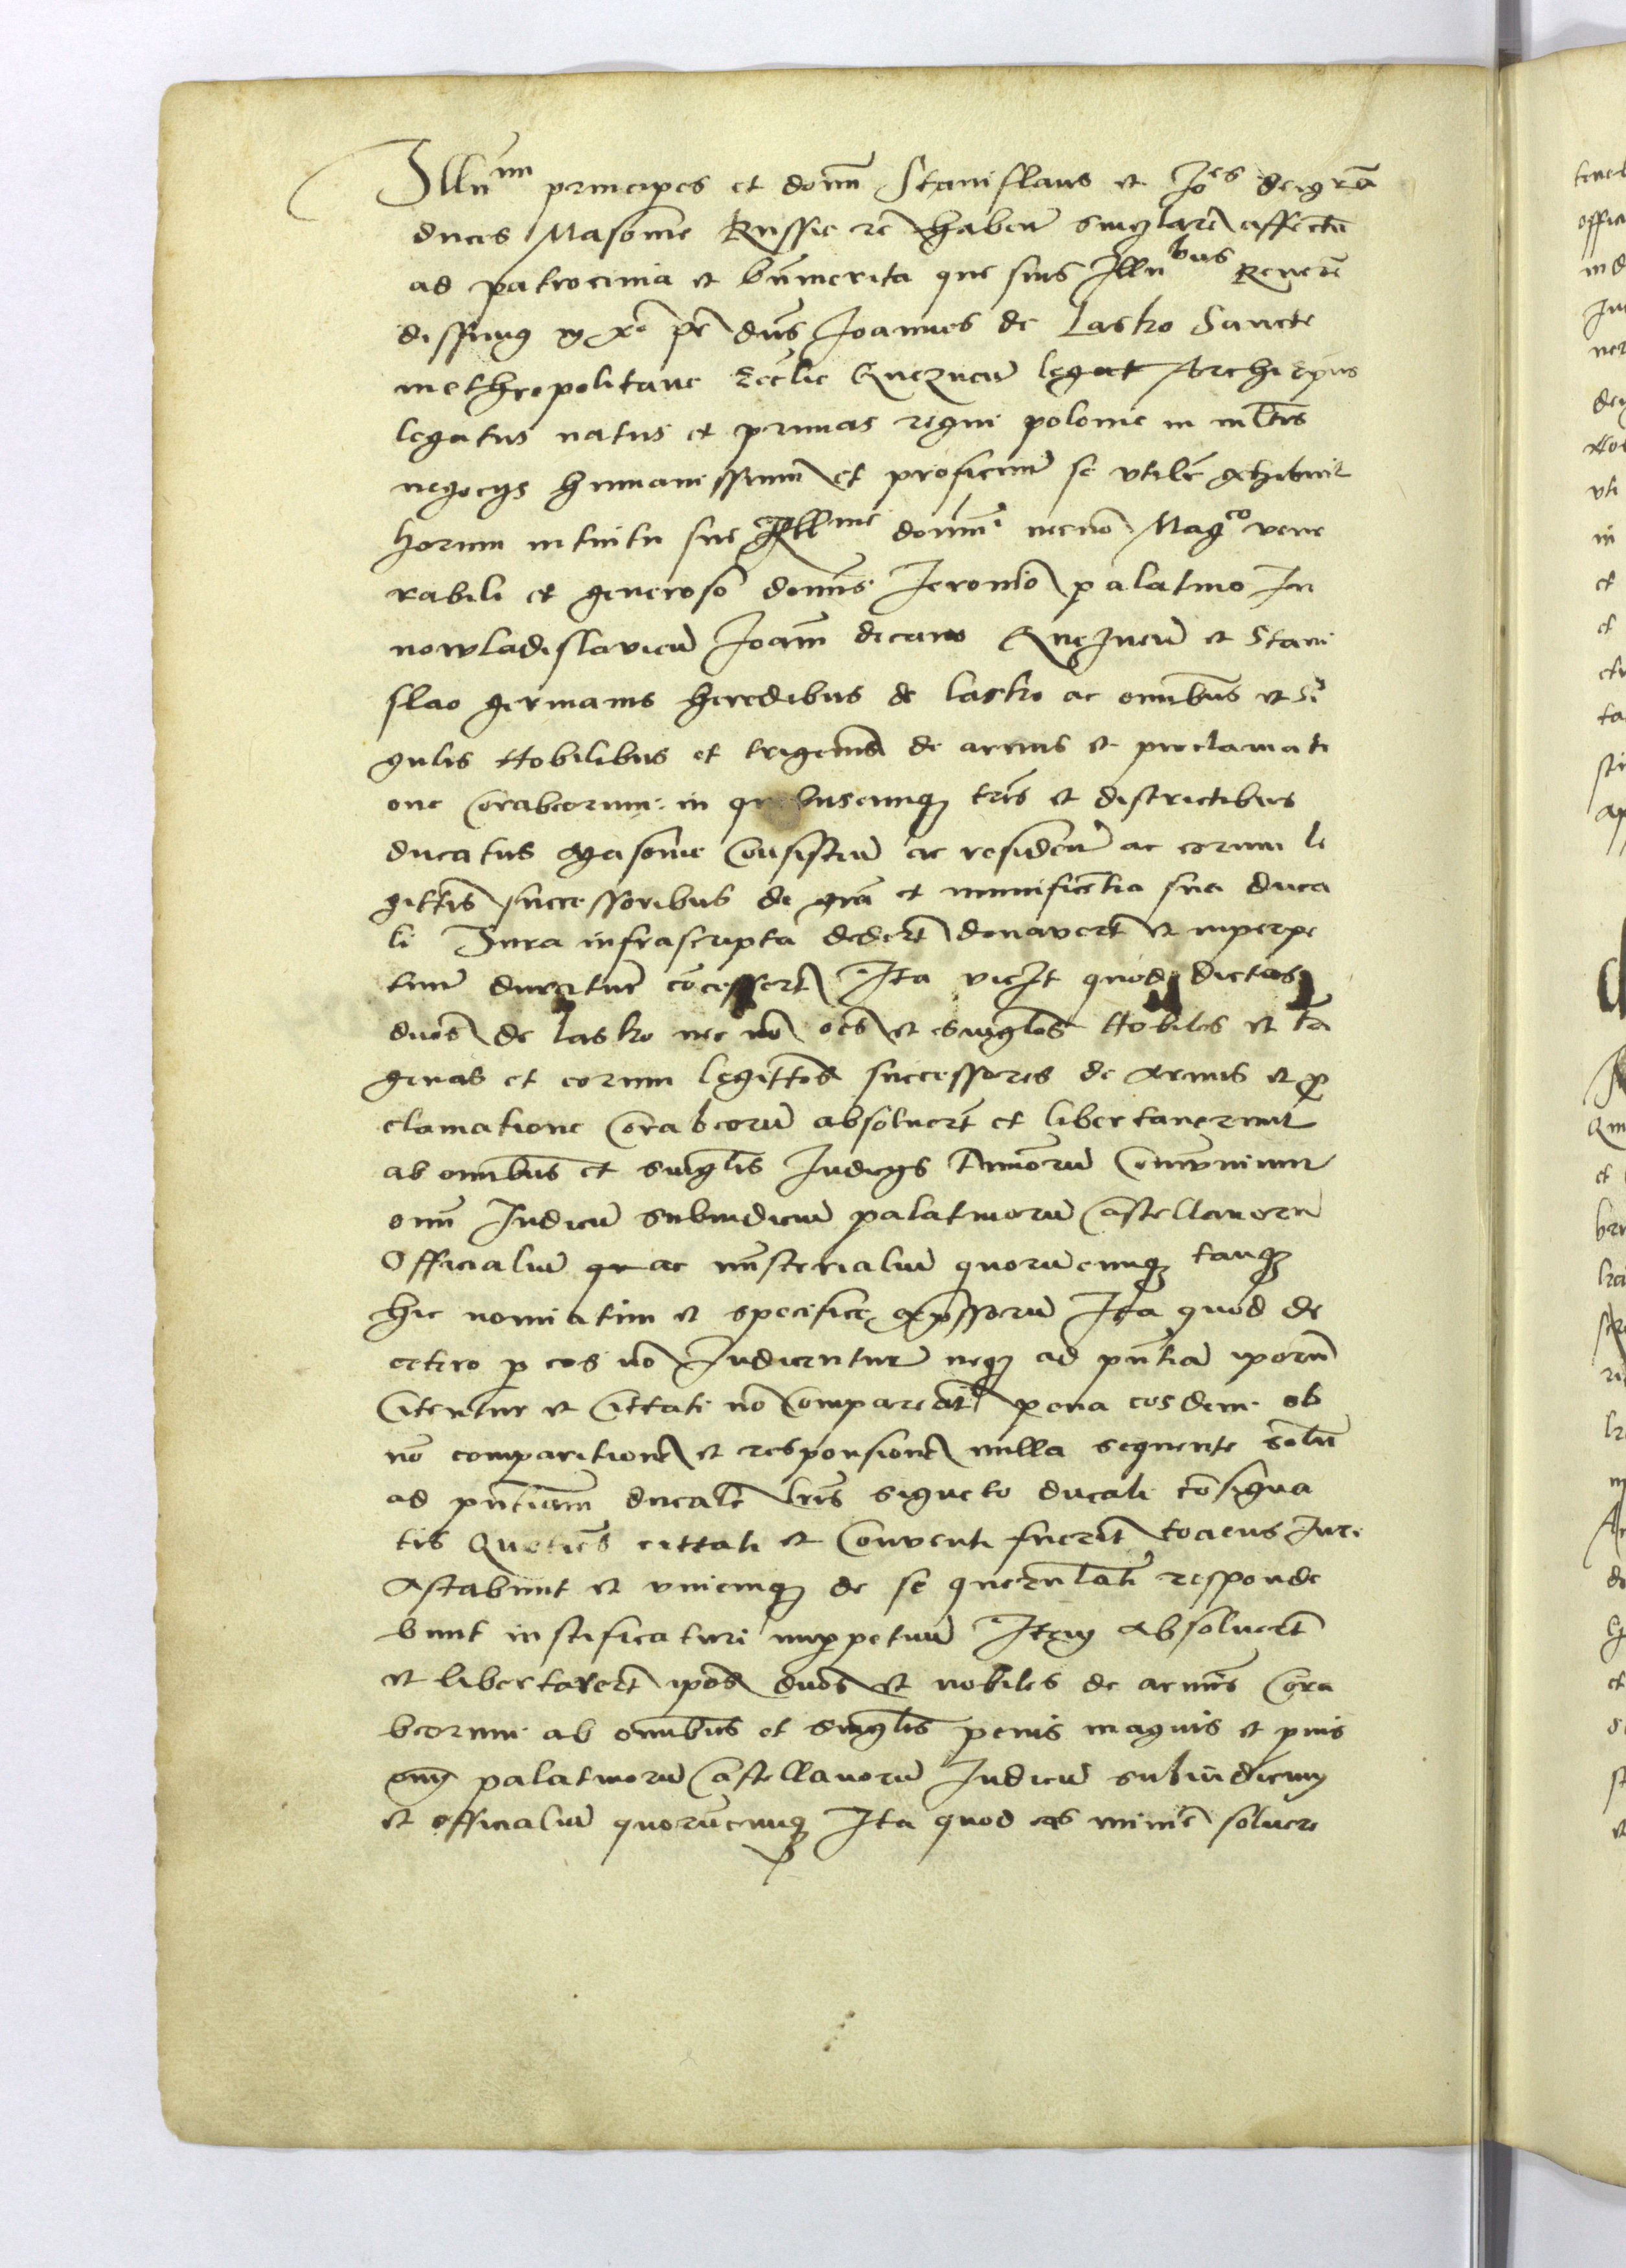 Illu^mi principes et domi Stanislaus et Jo^es dei gra
duces Masovie Russie rc haben singlare affectu
ad patrocinia et bnmerita que suis Illu^bus Reveren
dissimus in xo pr dns Joannes de Lasko Sancte
methropolitane Eccle Gneznen legat Archieps
legatus natus et primas regni polonie in mltis
negocys humanissimum et proficuum se utilem exhibuit
horum intuitu sue Ill^me domi necno Mag^co vene
rabili et generoso domis Jeronimo palatino In
nowladislavien Joanni decano Gneznen et Stani
slao germanis heredibus de Lasko ac omnibus et Si
gulis Nobilibus et terigenis de armis et proclamati
one Corabeorum in quibuscunq terris et districtibus
ducatus Masovie Consisten ac residen ac eorum le
gittis successoribus de gra et munificentia sua duca
li Jura infrascripta dedert donavert et inperpe
tuum duratur concessert Ita vict quod dictos
dnos de Lasko nec no oes et singlos Nobiles et teri
genas et eorum legittos successores de Armis et pro
clamatione Corabeoru absolvert et libertaverunt
ab omnibus et singlis Judicys Terrarum Communium
omn Judicu subiudicu palatinoru Castellanoru
Officialiu qr ac ministerialiu quorumcunq tanq
hic nominatim et specifice expssoru Ita quod de
cetero p eos no Judicentur neq ad pntia iporu
Citentur et Cittati no Compareant pena eosdem ob
no comparitione et responsione nulla sequente Solu
ad pntiam ducale lris signeto ducali consigna
tis Quoties cittati et Conventi fuerint tociens Juri
Astabunt et unicuiq de se querulati responde
bunt iustificaturi inppetuum Item Absolvert
et libertavert ipos dnos et nobiles de armis Cora
beorum ab omnibus et singlis penis magnis et pvis
omn palatinoru Castellanoru Judicu subiudicum
et officialiu quorumcunq Ita quod eas minime solvere